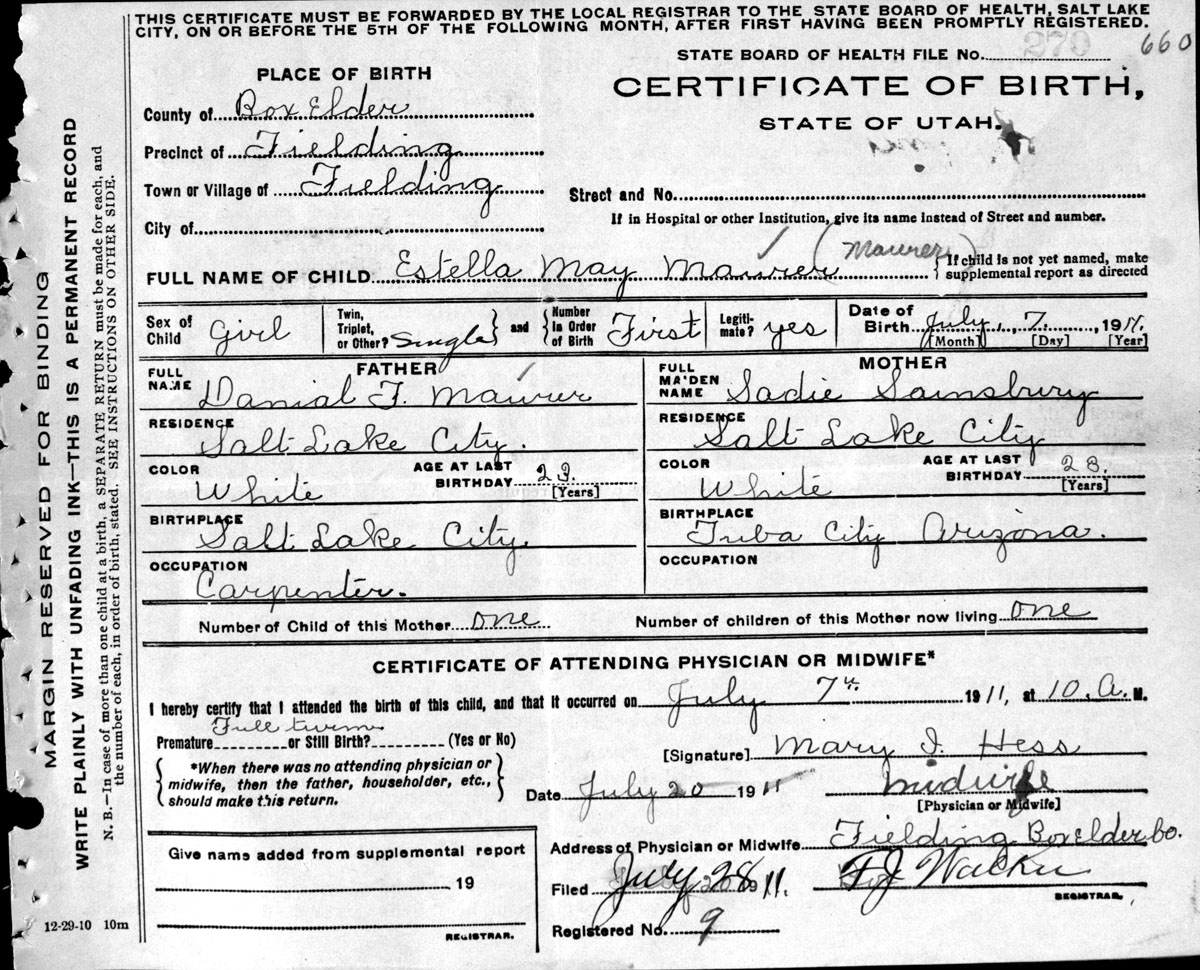 THIS CERTIFICATE MUST BE FORWARDED BY THE LOCAL REGISTRAR TO THE STATE BOARD OF HEALTH, SALT LAKE
CITY, ON OR BEFORE THE 5TH OF THE FOLLOWING MONTH, AFTER FIRST HAVING BEEN PROMPTLY REGISTERED.
STATE BOARD OF HEALTH FILE No. 270 660
PLACE OF BIRTH
CERTIFICATE OF BIRTH,
STATE OF UTAH.
County of Box Elder
Precinct of Fielding
Town or Village of Fielding
Street and No.
City of
If in Hospital or other Institution, give its name instead of Street and number.
FULL NAME OF CHILD Estella May Maurer (Maurer)
If child is not yet named, make
supplemental report as directed
Sex of Child Girl
Twin, Triplet, or Other? Single
and
Number in Order of Birth First
Legiti-mate? yes
Date of Birth July, 7, 1911.
[Month] [Day] [Year]
FATHER
MOTHER
FULL NAME Danial F. Maurer
FULL MAIDEN NAME Sadie Sainsbury
RESIDENCE Salt Lake City.
RESIDENCE Salt Lake City
COLOR White
AGE AT LAST BIRTHDAY 23. [Years]
COLOR White
AGE AT LAST BIRTHDAY 23. [Years]
BIRTHPLACE Salt Lake City.
BIRTHPLACE Tuba City Arizona.
OCCUPATION Carpenter.
OCCUPATION
Number of Child of this Mother one
Number of children of this Mother now living one
CERTIFICATE OF ATTENDING PHYSICIAN OR MIDWIFE*
I hereby certify that I attended the birth of this child, and that it occurred on July 7th 1911, at 10. A. M.
Full turm
Premature or Still Birth? (Yes or No)
[Signature] Mary I. Hess
*When there was no attending physician or
midwife, then the father, householder, etc.,
should make this return.
Date July 20 1911
midwife
[Physician or Midwife]
Address of Physician or Midwife Fielding Boxelder Co.
Give name added from supplemental report
19
REGISTRAR.
Filed July 28 1911.
Walker
REGISTRAR.
Registered No. 9
12-29-10 10m
MARGIN RESERVED FOR BINDING
WRITE PLAINLY WITH UNFADING INK—THIS IS A PERMANENT RECORD
N. B.—In case of more than one child at a birth, a SEPARATE RETURN must be made for each, and
the number of each, in order of birth, stated. SEE INSTRUCTIONS ON OTHER SIDE.